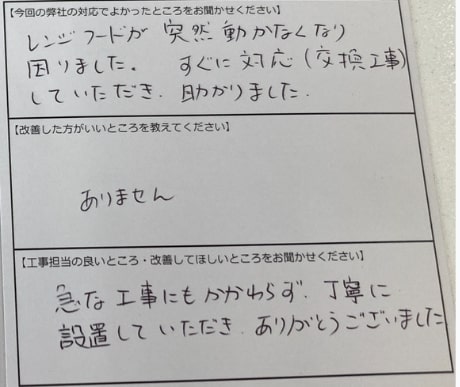 【今回の弊社の対応でよかったところをお聞かせください】
レンジフードが 突然動かなくなり
困りました。 すぐに対応(交換工事)
していただき、助かりました。
【改善した方がいいところを教えてください】
ありません
【工事担当の良いところ・改善してほしいところをお聞かせください】
急な工事にもかかわらず、丁寧に
設置していただき、ありがとうございました